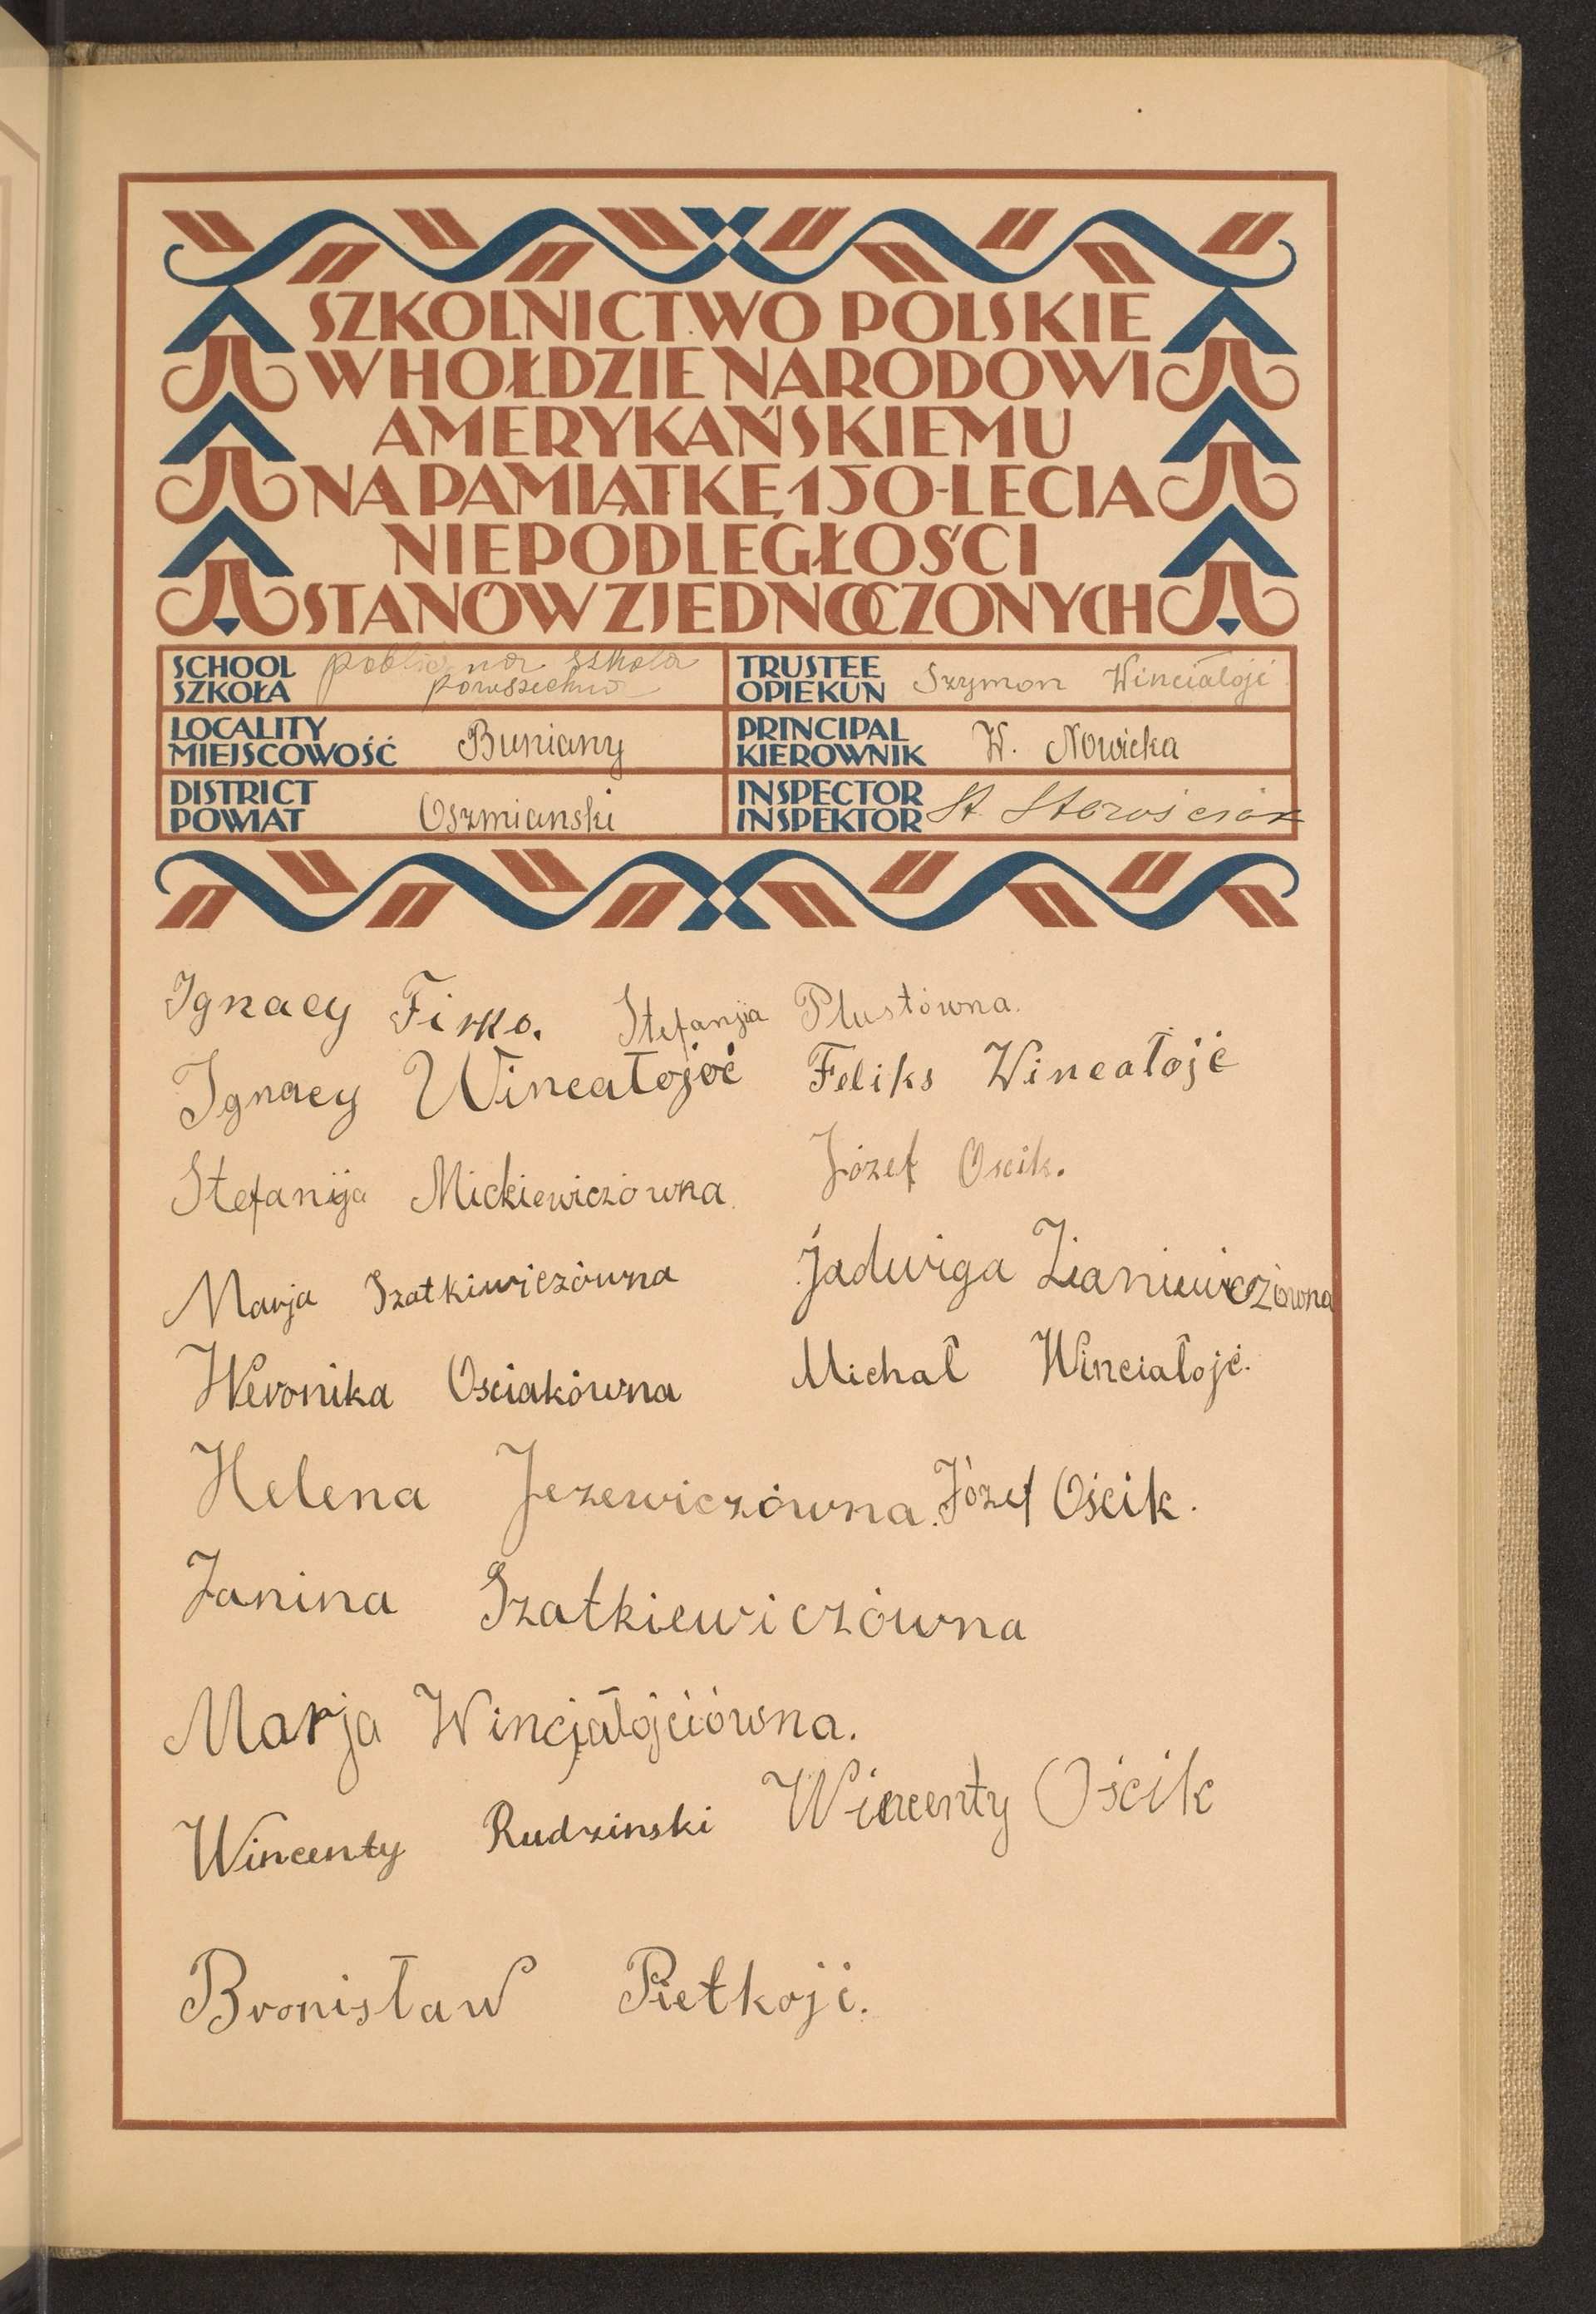 SZKOLNICTWO POLSKIE
W HOŁDZIE NARODOWI
AMERYKAŃSKIEMU
NA PAMIĄTKĘ 150-LECIA
NIEPODLEGŁOŚCI
STANÓW ZJEDNOCZONYCH
SCHOOL
SZKOŁA
publiczna szkoła
powszechna
TRUSTEE
OPIEKUN
Szymon Winciałojć
LOCALITY
MIEJSCOWOŚĆ
Buniany
PRINCIPAL
KIEROWNIK
W. Nowicka
DISTRICT
POWIAT
Oszmianski
INSPECTOR
INSPEKTOR
St. Starościak
Ignacy Firko. Stefanja Plustówna.
Ignacy Wincałojoć Feliks Wincałojć
Stefanija Mickiewiczówna Józef Oscik.
Marja Szatkiwiczówna Jadwiga Zianiewiczówna
Weronika Osciakówna Michał Winciałojć.
Helena Jezewiczówna. Józef Ościk.
Janina Szatkiewiczówna
Marja Wincjałojćiówna.
Wincenty Rudzinski Wincenty Ościk
Bronisław Pietkojć.